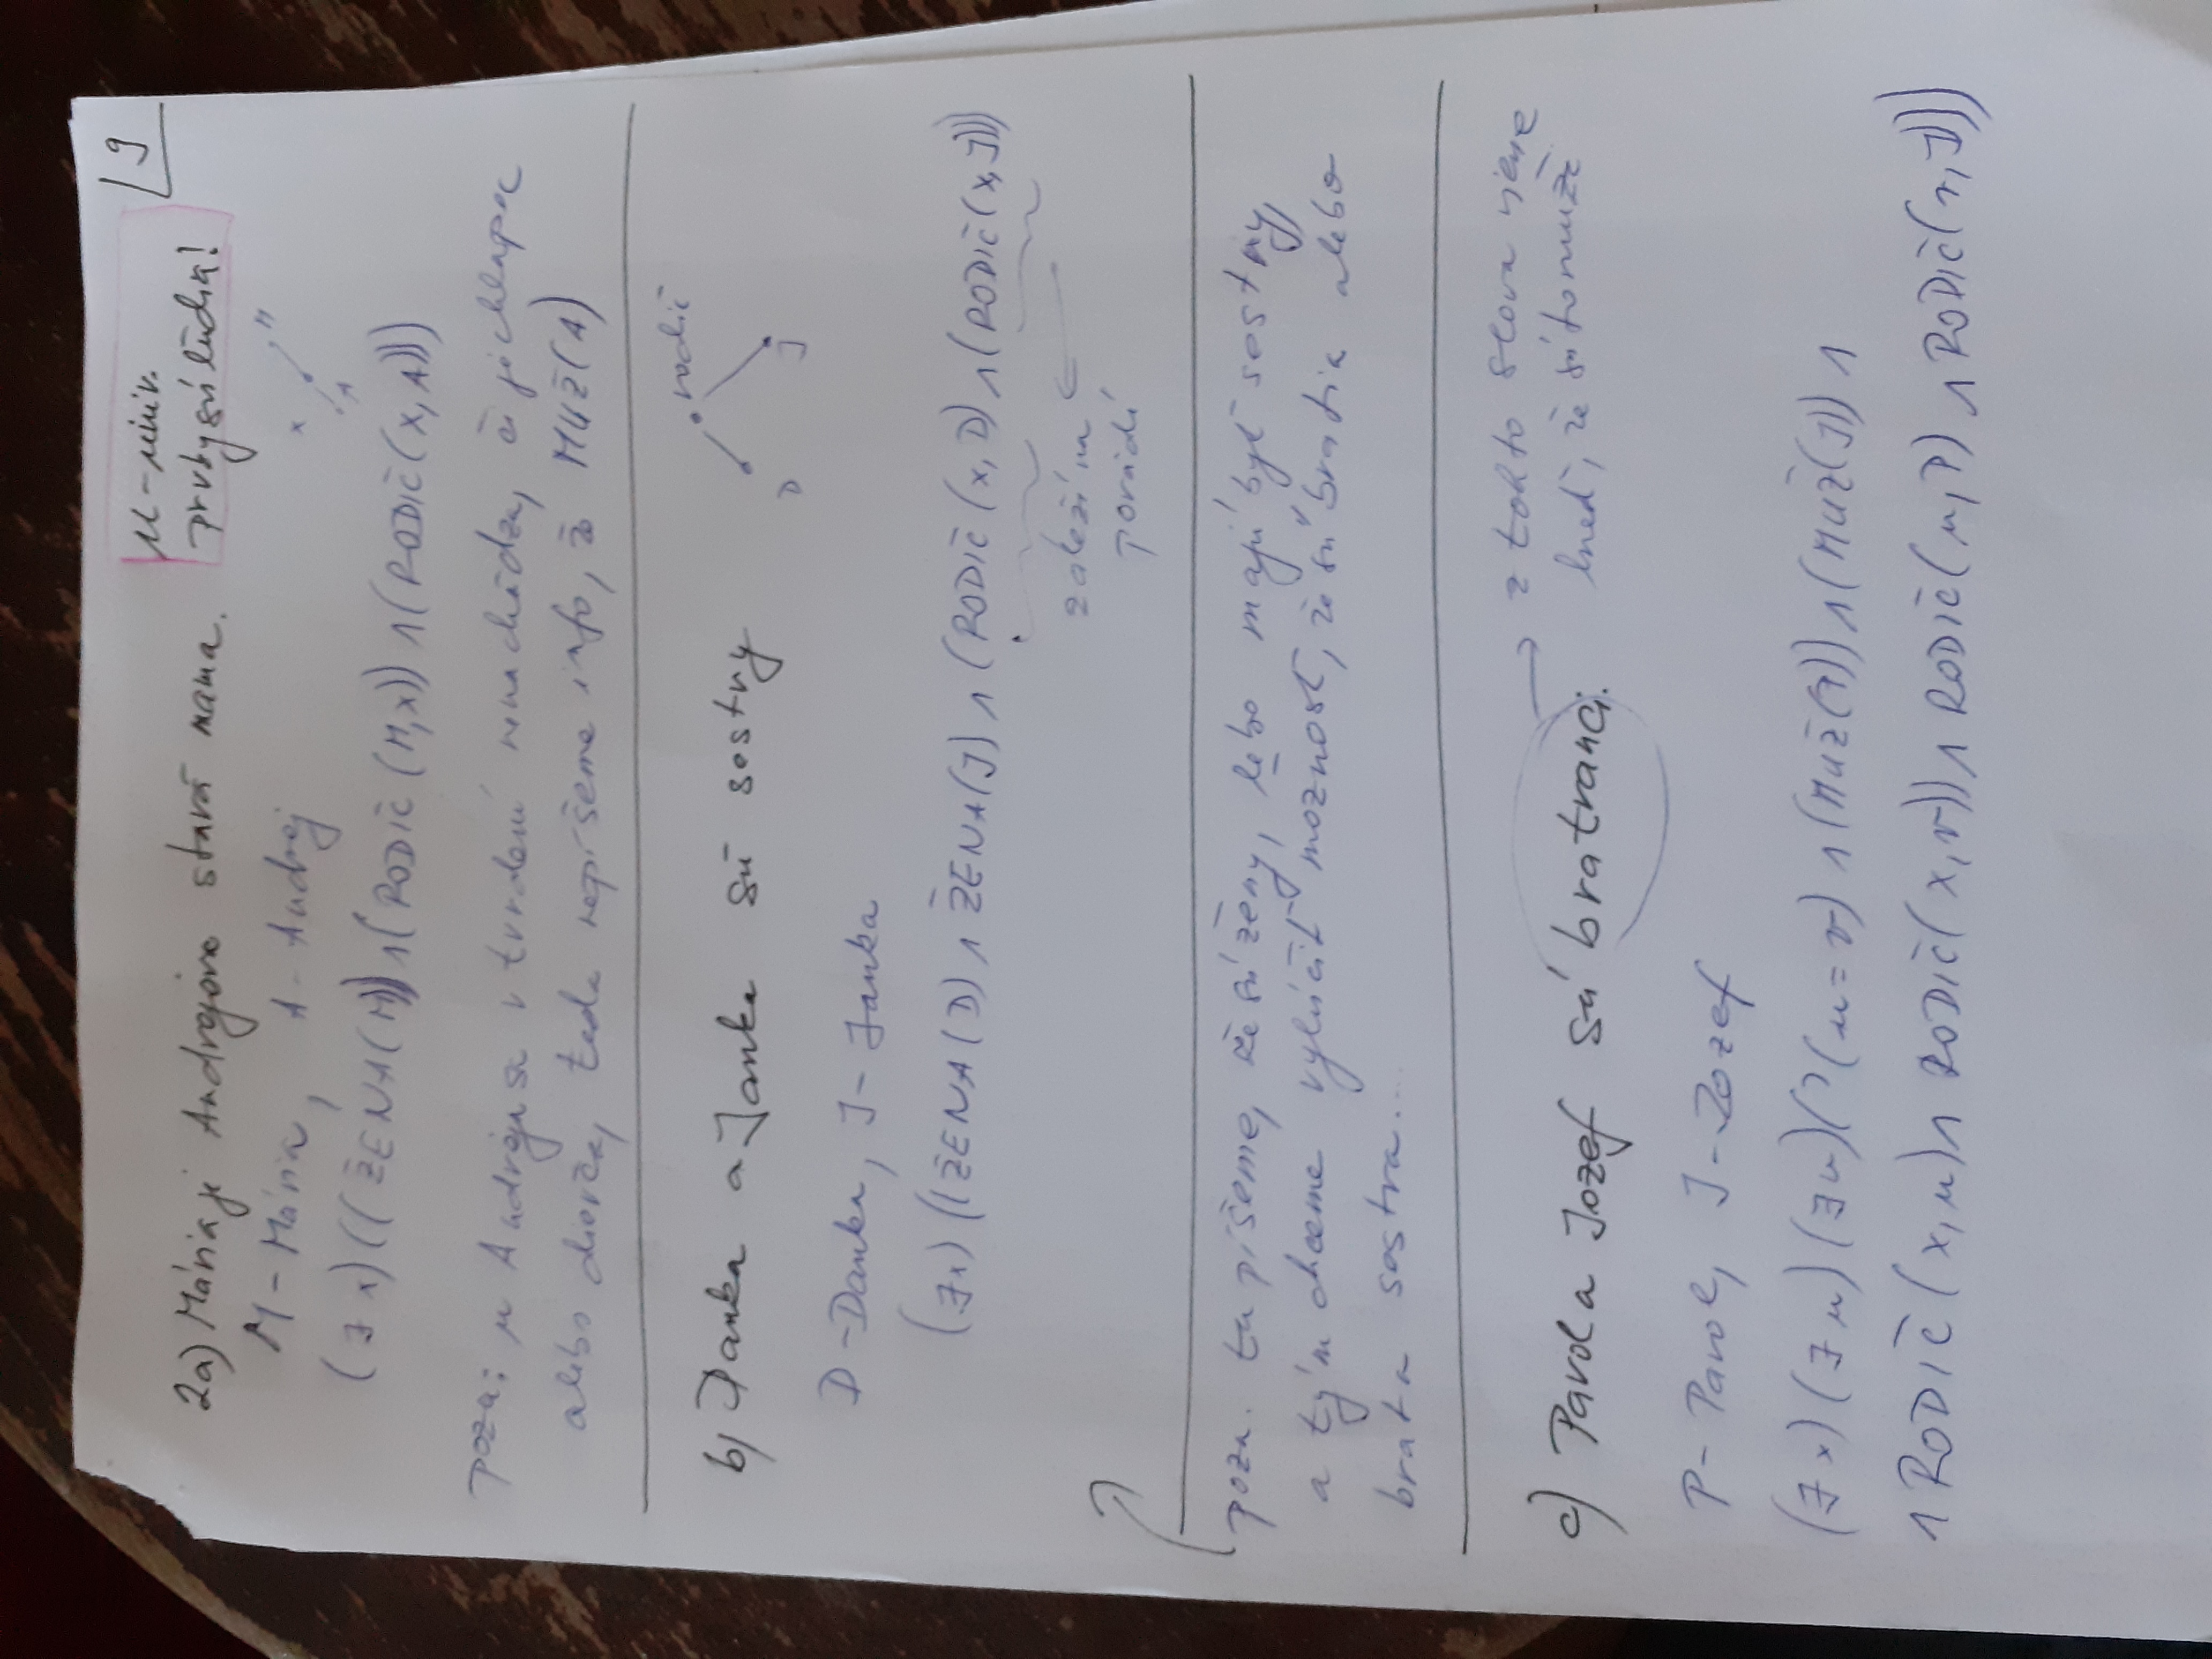 9
U-univ.
prvky sú ľudia!
2a) Mária je Andrejova stará mama.
M-Mária, A-Andrej
x M
A
(∃x)((ŽENA(M)) ∧ (RODIČ(M,x)) ∧ (RODIČ(x,A)))
pozn: u Andreja sa v tvrdení nenachádza, či je chlapec
alebo dievča, teda nepíšeme info, že MUŽ(A)
b) Danka a Janka sú sestry
rodič
D J
D-Danka, J-Janka
(∃x)((ŽENA(D) ∧ ŽENA(J) ∧ (RODIČ(x,D) ∧ (RODIČ(x,J)))
záleží na
poradí
?
pozn. tu píšeme, že sú ženy, lebo majú byť sestry,
a tým chceme vylúčiť možnosť, že sú bratia alebo
brat a sestra....
c) Pavol a Jozef sú bratranci. → z tohto slova vieme
hneď, že sú to muži
P-Pavol, J-Jozef
(∃x)(∃u)(∃v)(¬(u=v) ∧ (MUŽ(P)) ∧ (MUŽ(J)) ∧
∧ RODIČ(x,u) ∧ RODIČ(x,v)) ∧ RODIČ(u,P) ∧ RODIČ(v,J)))